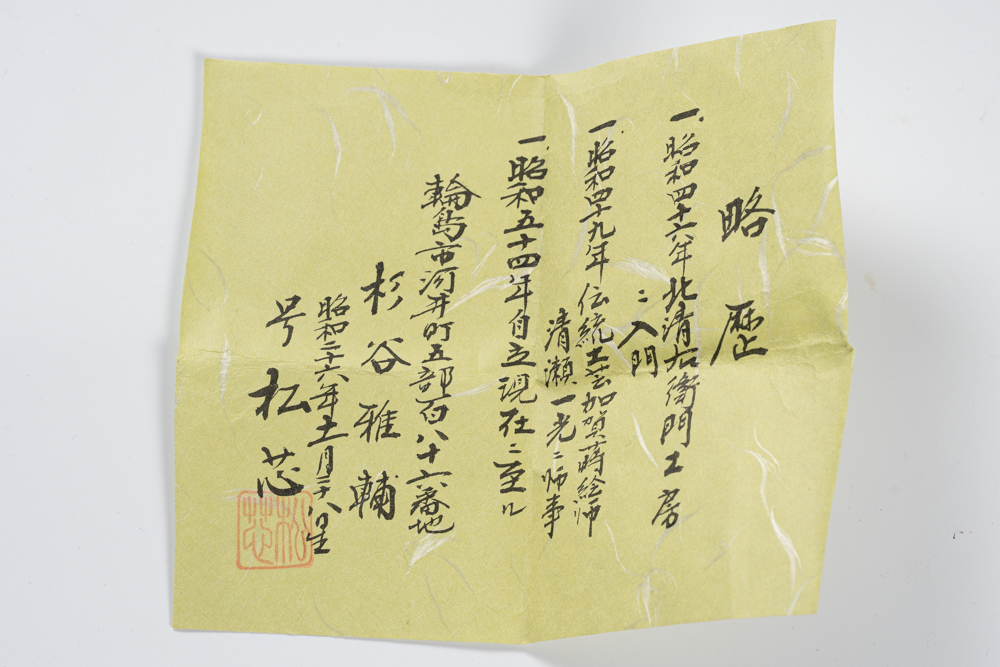 略歴
一、昭和四十六年北清右衛門工房
ニ入門
一、昭和四十九年伝統工芸加賀蒔絵師
清瀬一光ニ師事
一、昭和五十四年自立現在ニ至ル
輪島市河井町五部百八十六番地
杉谷雅輔
昭和二十六年十一月二十八日生
号 松芯
松芯